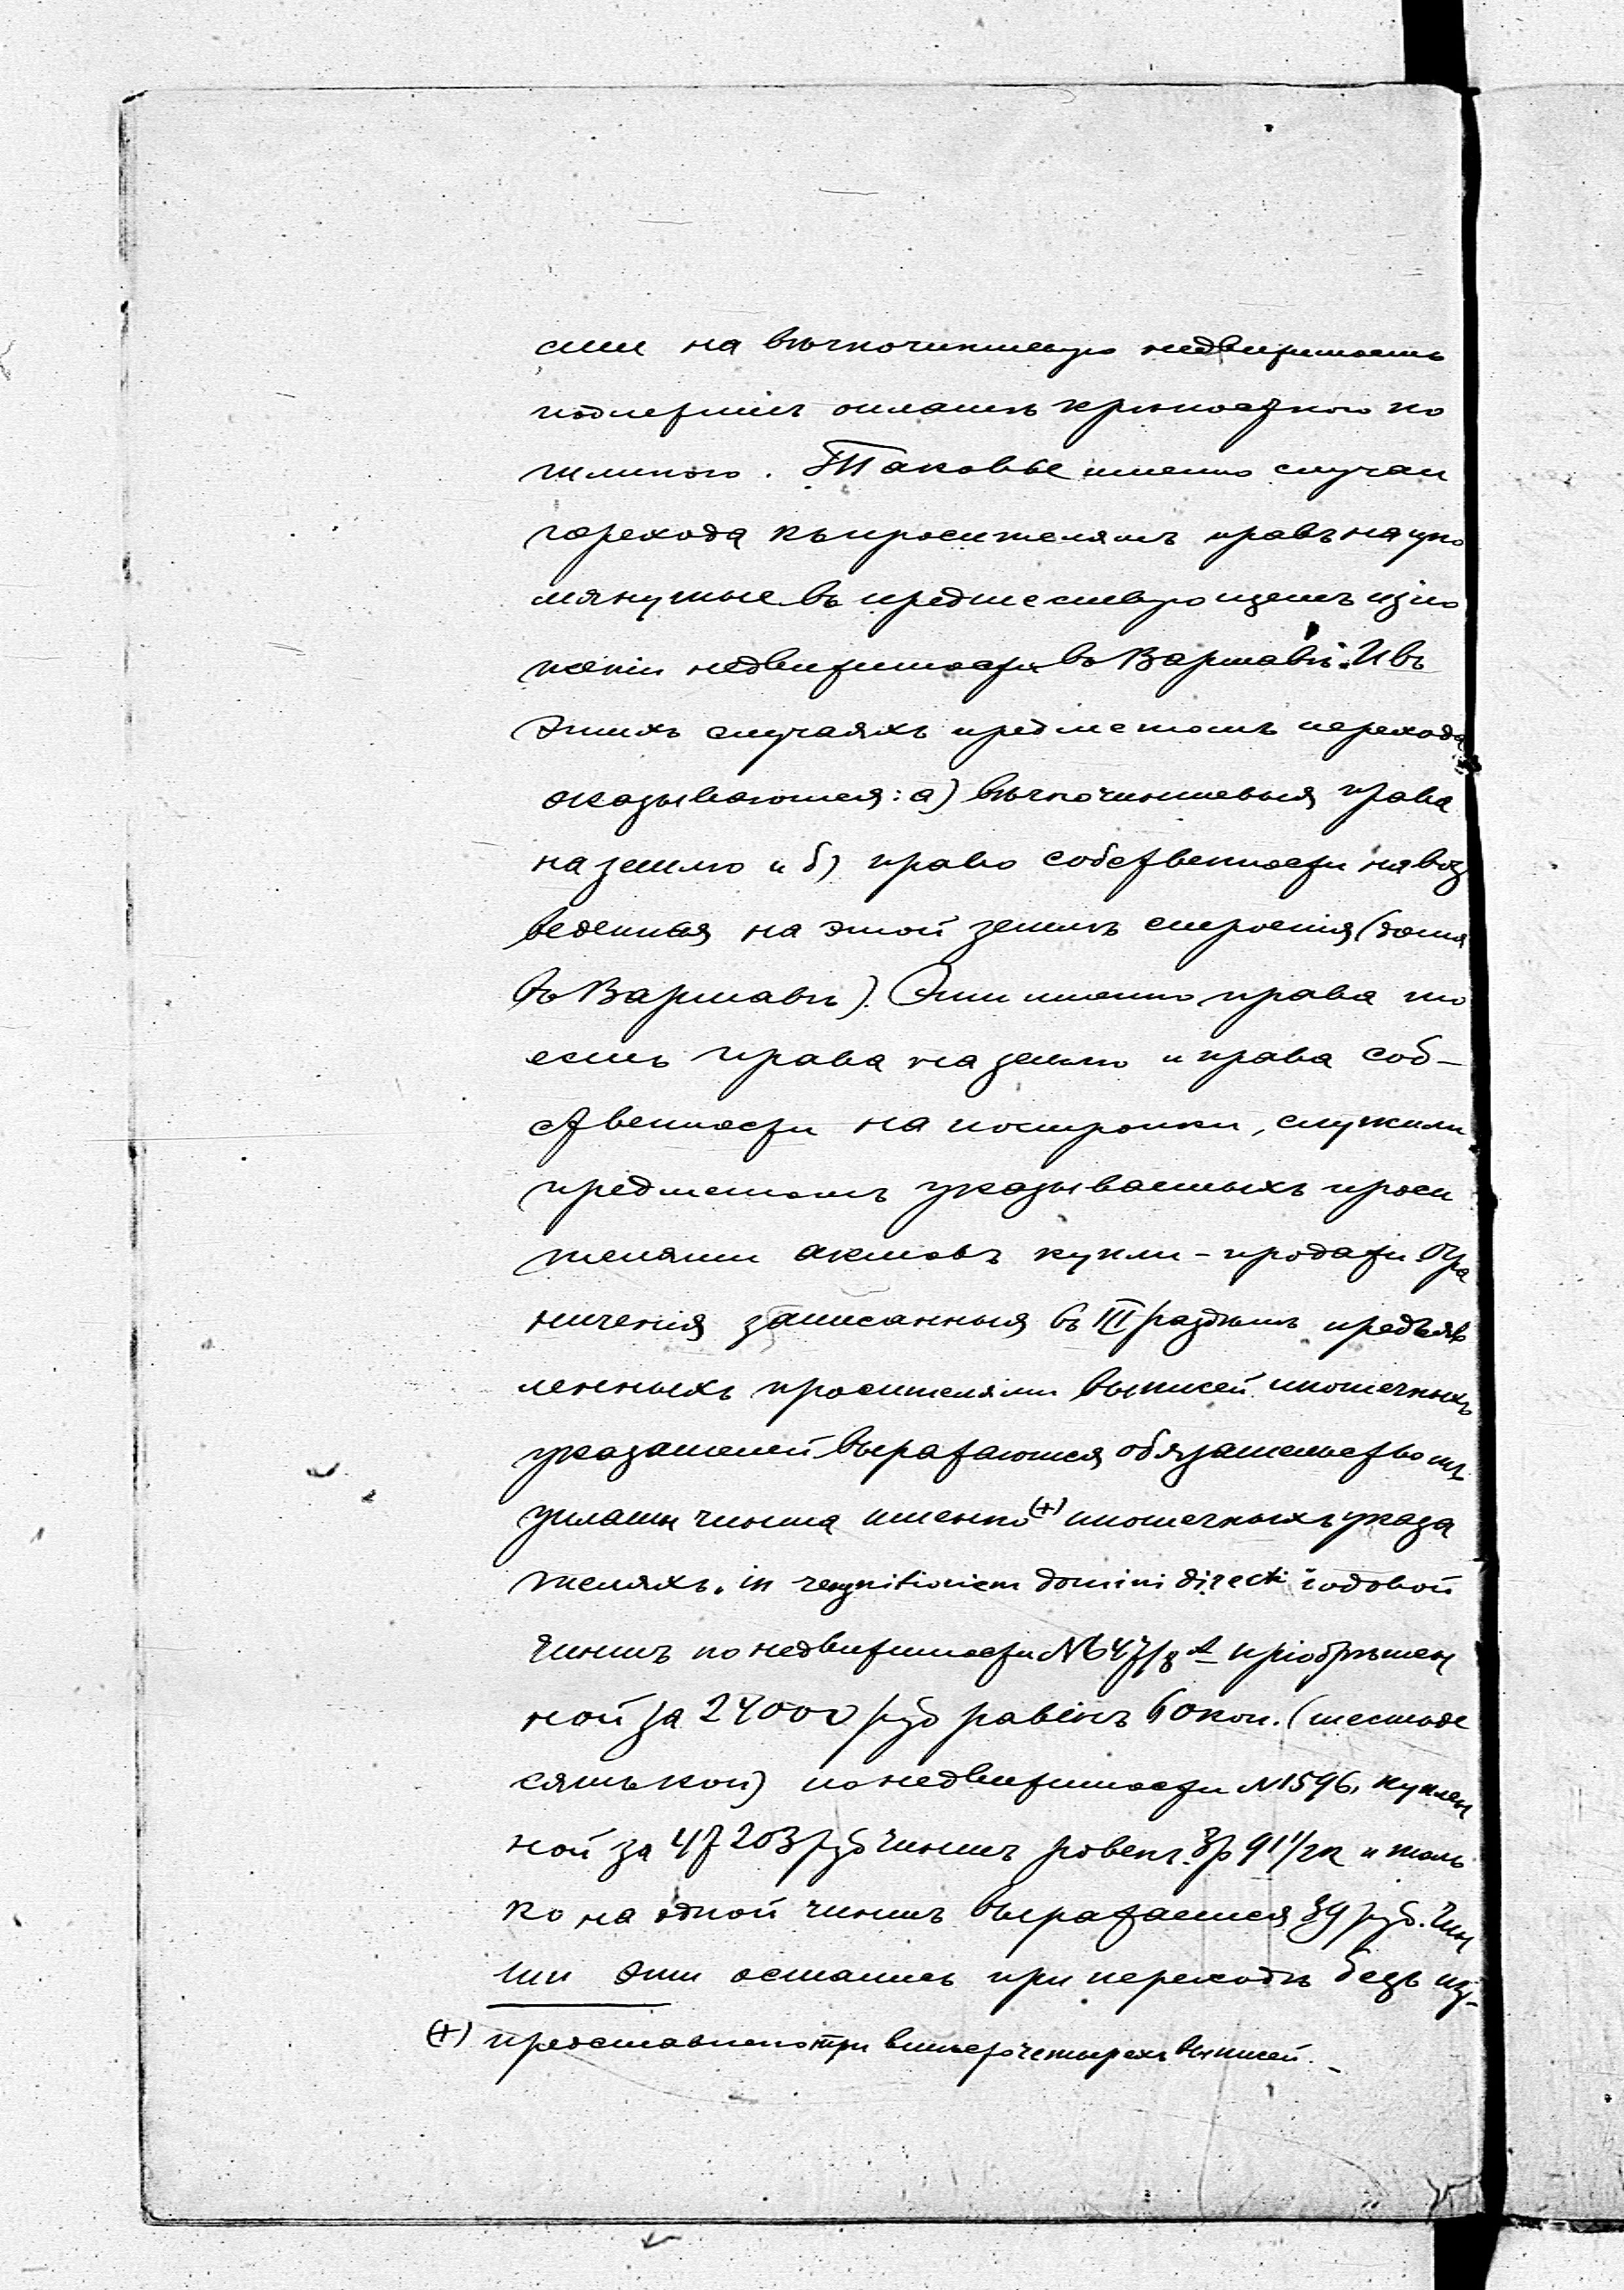 сти на вѣчночиншевую недвижимость
подлежитъ оплатѣ крѣпостною по
шлиною. Таковые именно случаи
перехода къ просителямъ правъ на упо
мянутые въ предшествующемъ изло
женіи недвижимости въ Варшавѣ. И въ
этихъ случаяхъ предметомъ перехода
оказываются: а) вѣчночиншевыя права
на землю и б) право собственности на воз
веденныя на этой землѣ строенія (дома
въ Варшавѣ). Эти именно права то
есть права на землю и права соб-
ственности на постройки, служили
предметомъ указываемыхъ проси
телями актовъ купли-продажи Огра
ниченія записанныя въ III раздѣлѣ предъяв
ленныхъ просителями выписей ипотечныхъ
указателей выражаются обязательствомъ
уплаты чинша именно (+) ипотечныхъ указа
теляхъ. in recognitionem domini directi годовой
чиншъ по недвижимости №647/8 А пріобрѣтен
ной за 24000 руб равенъ 60 коп. (шестьде
сятъ коп) по недвижимости №1596, куплен
ной за 47203 руб чиншъ ровенъ 3р 91 1/2к и толь
ко на одной чиншъ выражается 39 руб. Чин
ши эти остались при переходѣ безъ из-
(+) предоставлено при четырехъ выписей.